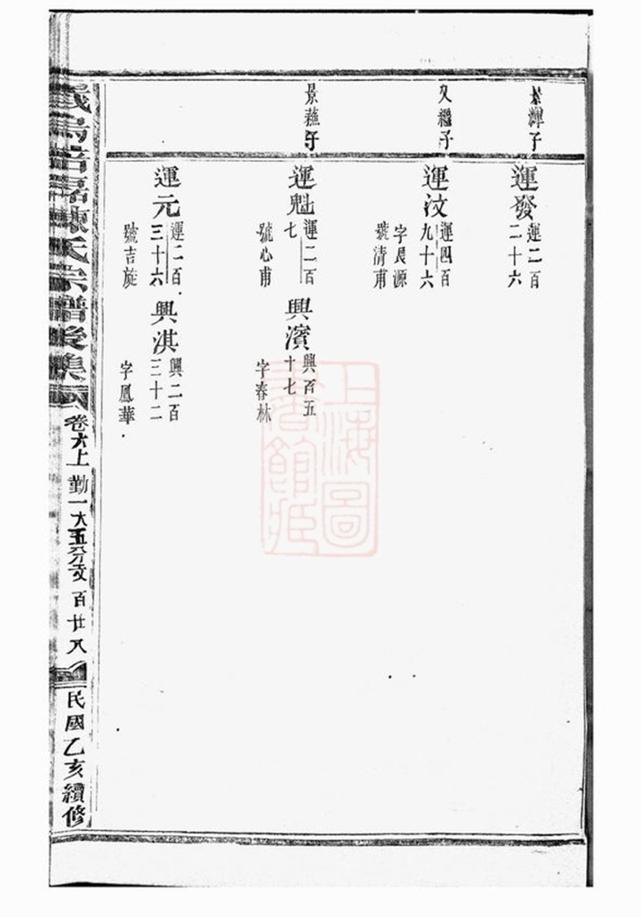 景輝子
運發
運二百
二十六
又繼子
運汶
運四百
九十六
字晨源
號清甫
景蘓子
運魁
運二百
七
號心甫
興濱
興百五
十七
字春林
運元
運二百
三十六
號吉旋
興淇
興二百
三十二
字鳳華
氏宗譜後集
卷六上
勤一大五分支
百廿八
民國乙亥續修
上海圖
書館